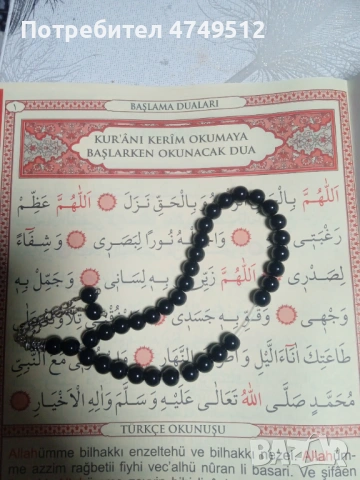 Потребител 4749512
١
BAŞLAMA DUALARI
KUR'ÂNI KERÎM OKUMAYA
BAŞLARKEN OKUNACAK DUA
اَللّٰهُمَّ وَبِالْحَقِّ نَزَلَ اَللّٰهُمَّ عَظِّمْ
رَغْبَتِى نُورًا لِبَصَرِى وَشِفَٓاءً
لِصَدْرِى اَللّٰهُمَّ زَيِّنْ بِهِ لِسَانِى وَجَمِّلْ بِهِ
وَجْهِى وَقَوِّ بِهِ جَسَدِى
طَاعَتِكَ اٰنَٓاءَ الَّيْلِ وَاَطْرَافَ النَّهَارِ مَعَ النَّبِىِّ
مُحَمَّدٍ صَلَّى اللّٰهُ تَعَالٰى عَلَيْهِ وَسَلَّمَ وَاٰلِهِ الْاَخْيَارِ
TÜRKÇE OKUNUŞU
Allahümme bilhakkı enzeltehü ve bilhakkı nezel. Allahüm-
me azzim rağbetii fiyhi vec'alhü nûran li basari. Ve şifâen